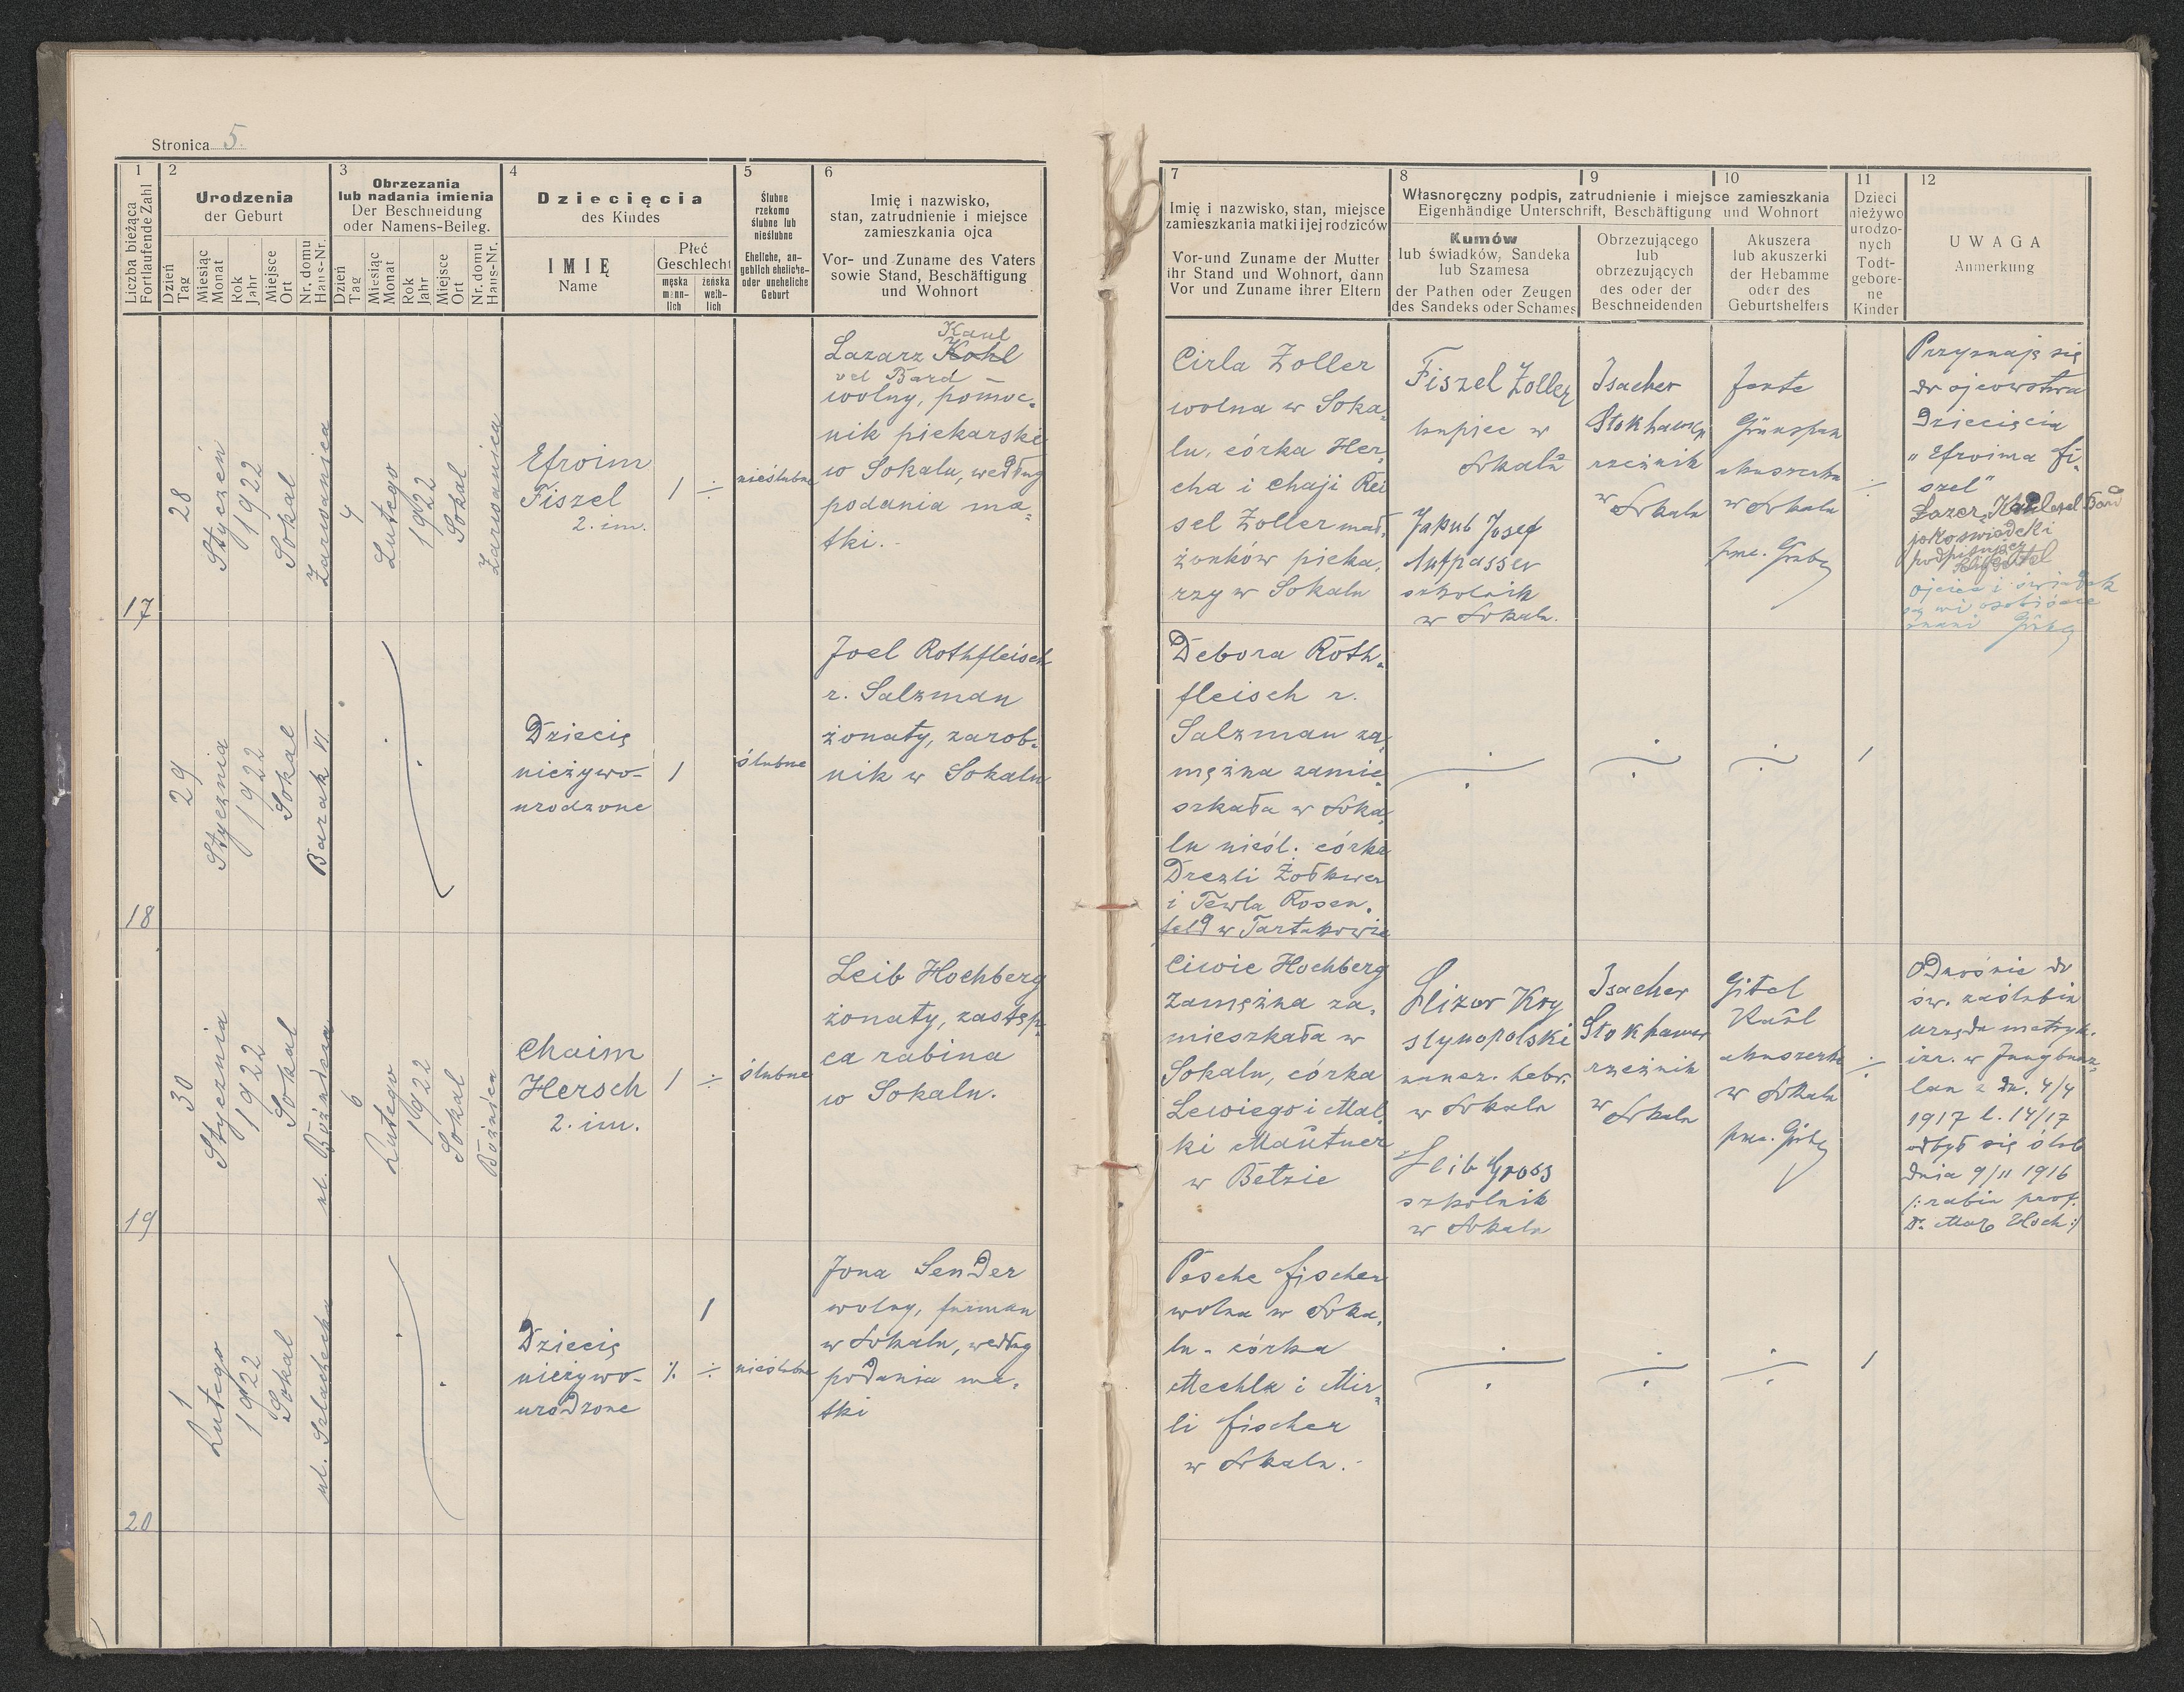 Stronica 5.
1
Liczba bieżąca
Fortlaufende Zahl
2
Urodzenia
der Geburt
Dzień
Tag
Miesiąc
Monat
Rok
Jahr
Miejsce
Ort
Nr. domu
Haus-Nr.
3
Obrzezania
lub nadania imienia
Der Beschneidung
oder Namens-Beileg.
Dzień
Tag
Miesiąc
Monat
Rok
Jahr
Miejsce
Ort
Nr. domu
Haus-Nr.
4
Dziecięcia
des Kindes
IMIĘ
Name
Płeć
Geschlecht
męska
männ-
lich
żeńska
weib-
lich
5
Ślubne
rzekomo
ślubne lub
nieślubne
Eheliche, an-
geblich eheliche-
oder uneheliche
Geburt
6
Imię i nazwisko,
stan, zatrudnienie i miejsce
zamieszkania ojca
Vor- und Zuname des Vaters
sowie Stand, Beschäftigung
und Wohnort
7
Imię i nazwisko, stan, miejsce
zamieszkania matki i jej rodziców
Vor-und Zuname der Mutter
ihr Stand und Wohnort, dann
Vor und Zuname ihrer Eltern
8
9
10
Własnoręczny podpis, zatrudnienie i miejsce zamieszkania
Eigenhändige Unterschrift, Beschäftigung und Wohnort
Kumów
lub świadków, Sandeka
lub Szamesa
der Pathen oder Zeugen
des Sandeks oder Schames
Obrzezującego
lub
obrzezujących
des oder der
Beschneidenden
Akuszera
lub akuszerki
der Hebamme
oder des
Geburtshelfers
11
Dzieci
nieżywo
urodzo-
nych
Todt-
gebore-
ne
Kinder
12
UWAGA
Anmerkung
17
28
Styczeń
1922
Sokal
Zarwanica
4
Lutego
1922
Sokal
Zarwanica
Efroim
Fiszel
2. im.
1 ÷
nieślubne
Kaul
Lazarz Kohl
vel Bard
wolny, pomoc-
nik piekarski
w Sokalu, według
podania ma-
tki.
Cirla Zoller
wolna w Soka-
lu, córka Her-
cha i Chaji Rei
sel Zoller mał-
żonków pieka-
rzy w Sokalu
Fiszel Zoller
kupiec w
Sokalu
Jakub Josef
Aufpasser
szkolnik
w Sokalu.
Isacher
Stokhamer
rzeźnik
w Sokalu
Jente
Grünspan
akuszerka
w Sokalu
÷
Przyznaję się
do ojcowstwa
Dziecięcia
„Efroima Fi-
szel"
Lazer Kaul vel Bard
jako świadek
podpisujący
ojciec i świadek
są mi osobiście
znani
18
29
Stycznia
1922
Sokal
Barak VI
Dziecię
nieżywo-
urodzone
1
ślubne
Joel Rothfleisch
r. Salzman
żonaty, zarob-
nik w Sokalu
Debora Roth-
fleisch r.
Salzman za-
mężna zamie-
szkała w Soka-
lu nieśl. córka
Drezli Żołkwer
i Tewla Rosen-
feld w Tartakowie
÷ ÷ ÷
1
19
30
Stycznia
1922
Sokal
ul. Bóźnicza
6
Lutego
1922
Sokal
Bóźnica
Chaim
Hersch
2. im.
1 ÷
ślubne
Leib Hochberg
żonaty, zastęp-
ca rabina
w Sokalu.
Ciwie Hochberg
zamężna za-
mieszkała w
Sokalu, córka
Lewiego i Mal-
ki Mautner
w Bełzie
Elizer Kry
stynopolski
naucz. hebr.
w Sokalu
Leib Gross
szkolnik
w Sokalu
Isacher
Stokhamer
rzeźnik
w
Sokalu
Gitel
Kaul
akuszerka
w Sokalu
÷
Odnośnie do
św. zaślubin
urzędu metryk.
izr. w Jungbunz-
lau z dn. 4/4
1917 l. 14/17
odbył się ślub
dnia 9/11 1916
/: rabin prof.
Dr. Hoch :/
20
1
Lutego
1922
Sokal
ul. Szlachecka
Dziecię
nieżywo-
urodzone
1
٪ ÷
nieślubne
Jona Sender
wolny, furman
w Sokalu, według
podania ma-
tki
Pesche Fischer
wolna w Soka-
lu - córka
Mechla i Mir-
li Fischer
w Sokalu.
÷ ÷ ÷
1